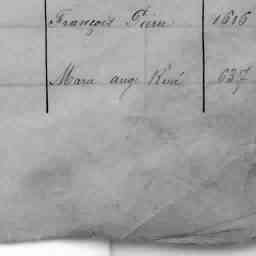 François Pierre 1616
Marc ange René 637